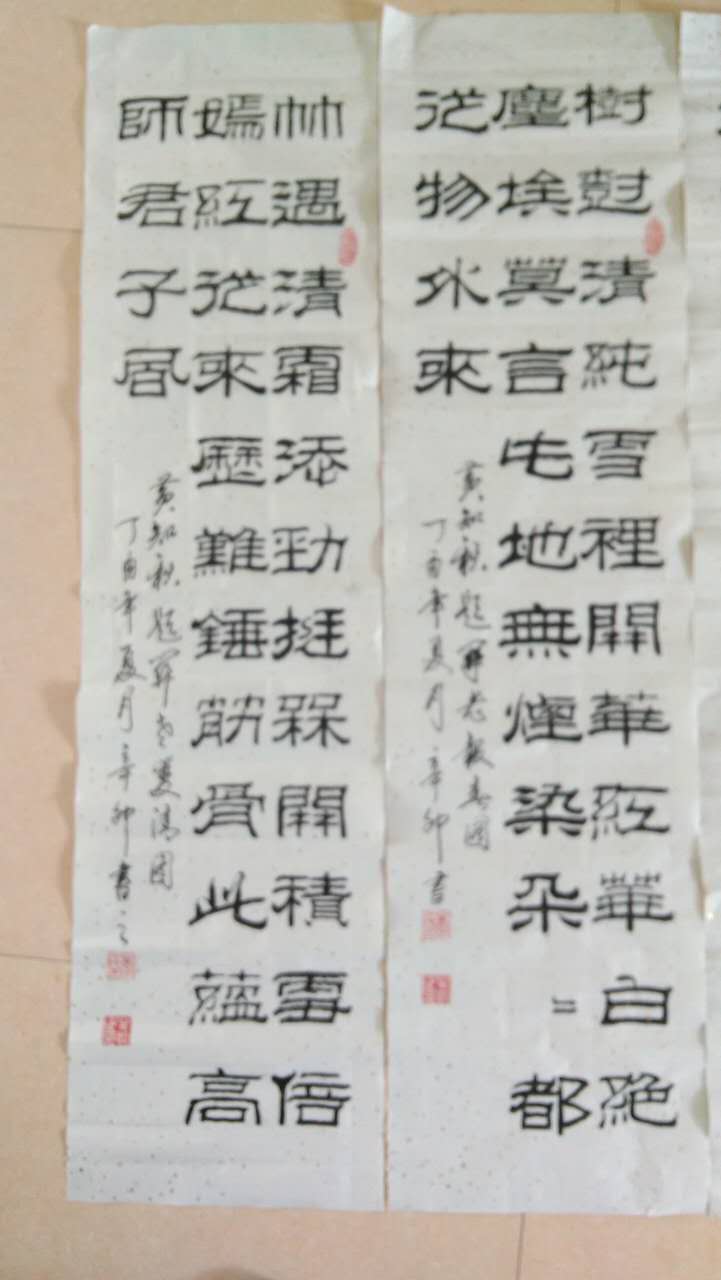 樹尌清純雪裡開華紅華白絕
塵埃莫言地無煙染朵〻都
從物外來
黄知秋題老報春圖
丁酉年夏月辛卯書
竹遇清霜添勁挺槑開積雪倍
嫣紅從來歷難錘筋骨此蘊高
師君子風
黄知秋題老雙清圖
丁酉年夏月辛卯書之